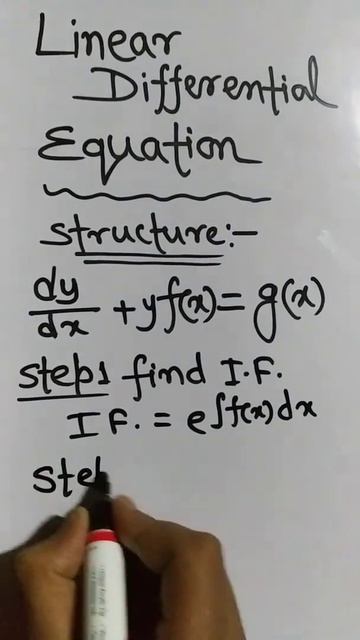 Linear
Differential
Equation
structure:-
dy/dx + yf(x) = g(x)
steps find I.F.
I F. = e∫f(x)dx
ste